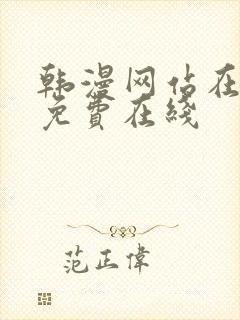 韩漫网站在
免費在綫
范正偉